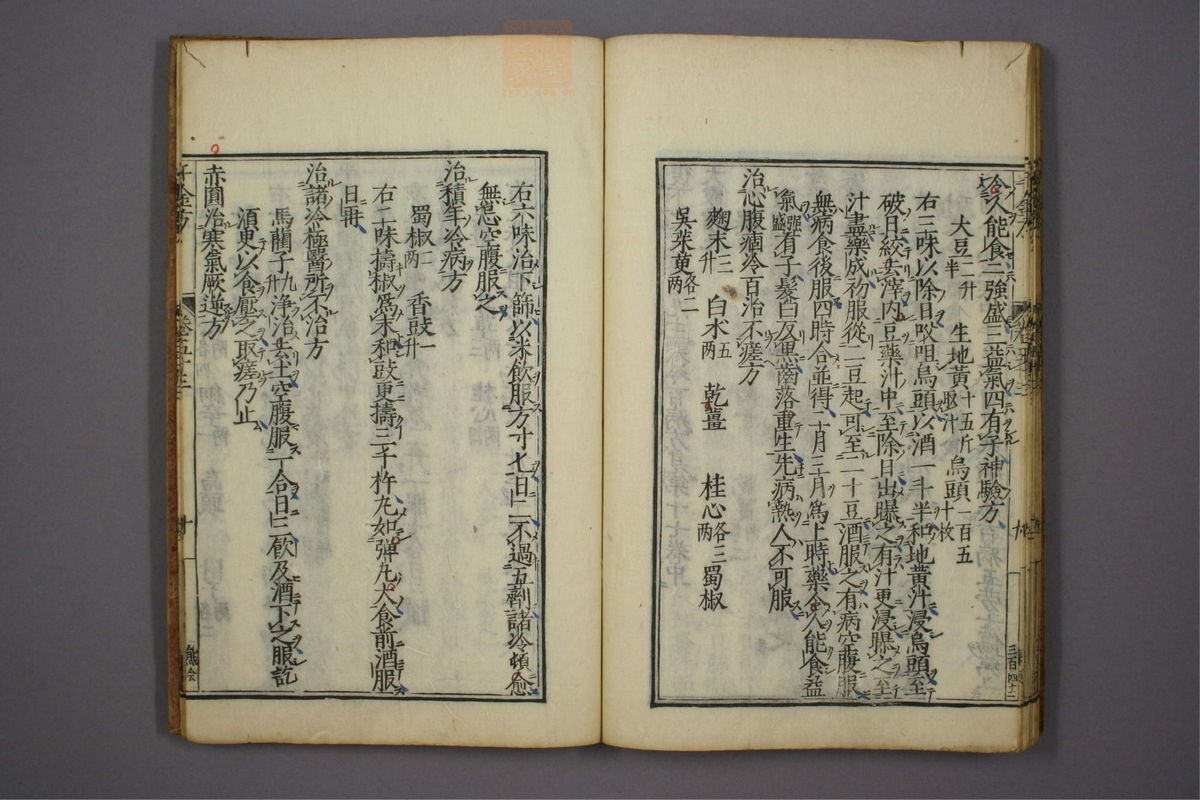 令人能食二強盛三益氣四有子神驗方
大豆二升半 生地黃十五斤取汁 烏頭一百五十枚
右三味以除日㕮咀烏頭以酒一斗半和地黃汁浸烏頭至
破日絞去滓内豆藥汁中至除日出曝之有汁更浸曝之至
汁盡藥成初服從二豆起可至一十豆酒服之有病空腹服
無病食後服四時合並得二月三月爲上時藥令人能食益
氣強盛有子髮白反黑齒落重生先病熱人不可服
治心腹痼冷百治不瘥方
麴末三升 白朮五兩 乾薑 桂心各三兩 蜀椒
吳茱萸各二兩
九
右六味治下篩以米飲服方寸匕日二不過五劑諸冷頓愈
無忌空腹服之
治積年冷病方
蜀椒二兩 香豉一升
右二味擣椒爲末和豉更擣三千杵丸如彈丸大食前酒服
日再
治諸冷極醫所不治方
馬藺子九升淨治去土空腹服一合日三飲及酒下之服訖
須更以食壓之取瘥乃止
赤圓治寒氣厥逆方
千金方
十